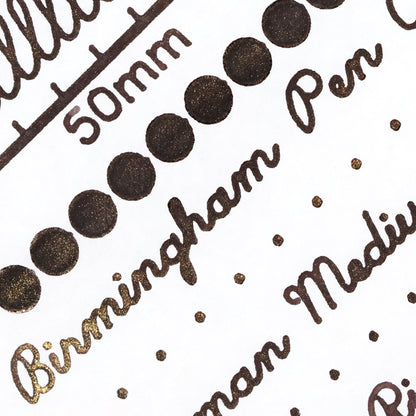 50mm
Birmingham Pen
man Mediu